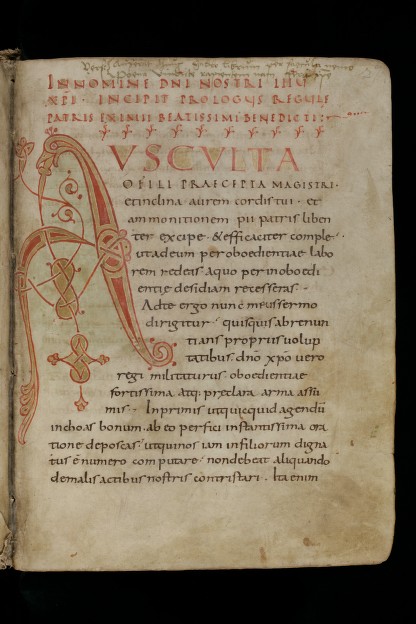 INNOMINE DNI NOSTRI IHU
XPI · INCIPIT PROLOGUS REGULE
PATRIS EXIMII BEATISSIMI BENEDICTI :
AUSCULTA
OFILI PRAECEPTA MAGISTRI ·
etinclina aurem cordistui · et
ammonitionem pii patris liben
ter excipe · &efficaciter comple ·
utadeum per oboedientiae labo
rem redeas aquo per inoboedi
entie desidiam recesseras ·
Adte ergo nunc meussermo
dirigitur · quisquis abrenun
tians propriis volup
tatibus dnō xpō uero
regi militaturus oboedientiae
fortissima atq; preclara arma assū
mis · Inprimis utquicquid agendū
inchoas bonum · ab eo perfici instantissima ora
tione deposcas · utquinos iam infiliorum digna
tus ē numero computare · nondebeat aliquando
demalis actibus nostris contristari · Ita enim